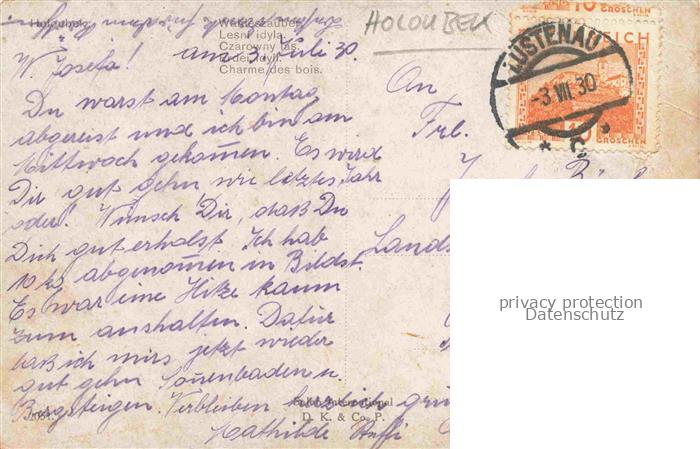 HOLOUBEK
Waldeszauber.
Lesní idyla.
Czarowny las.
Erdei idyll.
Charme des bois.
10 GROSCHEN
REICH
GROSCHEN
LUSTENAU
-3.VII.30
* c *
W. Josefa! am 3. Juli 30.
Du warst am Montag
abgereist und ich bin am
Mittwoch gekommen. Es wird
Dir gut gehn wie letztes Jahr
oder! Wünsch Dir, daß Du
Dich gut erholst. Ich hab
10 kg abgenommen in Bildst.
Es war eine Hitze kaum
zum anshalten. Dafür
laß ich mirs jetzt wieder
gut gehn Sonnenbaden u.
Bergsteigen. Verbleiben herzlich grü
Mathilde Steffi
An
Frl.
Lands
International
D. K. & Co. P.
privacy protection
Datenschutz